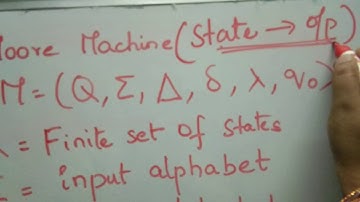 Moore Machine (State → O/P)
M = (Q, Σ, Δ, δ, λ, q₀)
= Finite set of states
Σ = input alphabet